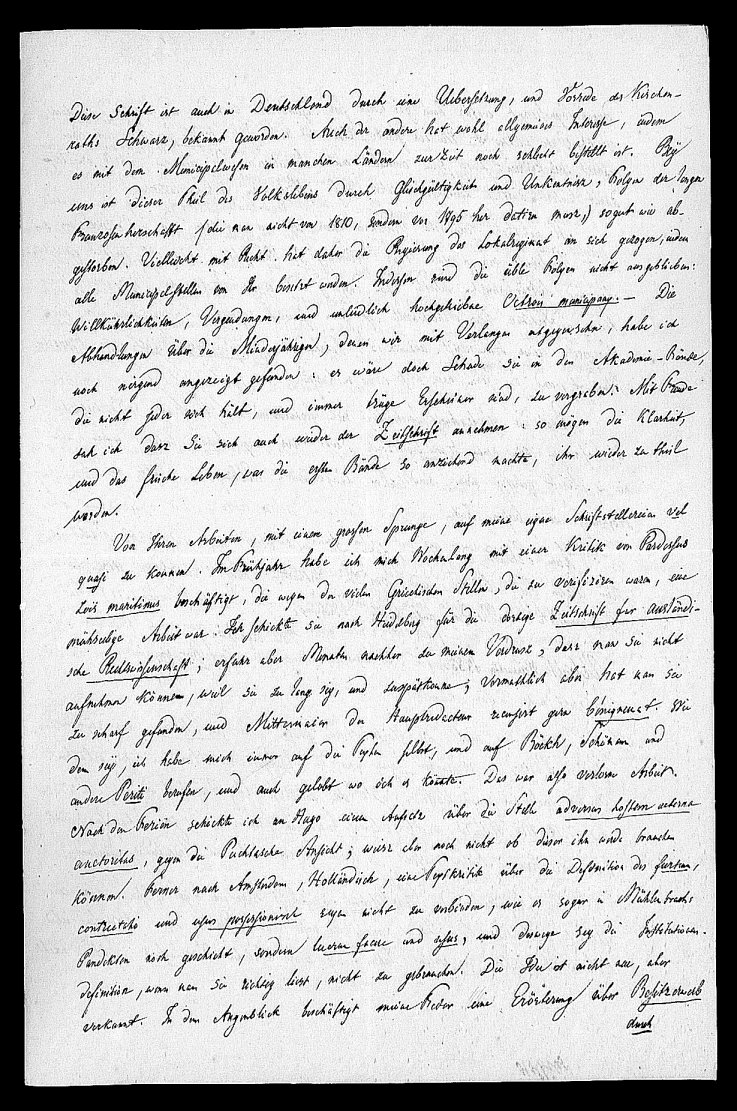 Diese Schrift ist auch in Deutschland durch eine Uebersetzung, und Vorrede des Kirchen-
raths Schwarz, bekannt geworden. Auch der andere hat wohl allgemeines Interesse, indem
es mit dem Municipalwesen in manchen Ländern zur Zeit noch schlecht bestellt ist. Bey
uns ist dieser Theil des Volkslebens durch Gleichgültigkeit und Unkentniss, Folgen der langen
Franzosenherschafft /die man nicht von 1810, sondern von 1795 her datiren muss,/ so gut wie ab-
gestorben. Vielleicht mit Recht hat daher die Regierung das Lokalregimat an sich gezogen, indem
alle Municipalstellen von Ihr besetzt werden. Indessen sind die üble Folgen nicht ausgeblieben:
Willkührlichkeiten, Vergeudungen, und unleidlich hochgetriebne Octrois municipaux. — Die
Abhandlungen über die Minderjährigen, denen wir mit Verlangen entgegensehn, habe ich
noch nirgend angezeigt gefunden: es wäre doch Schade sie in den Akademie-Bände,
die nicht jeder sich hält, und immer träge Erscheinen sind, zu vergraben. Mit Freude
sah ich dass Sie sich auch wieder der Zeitschrift annehmen: so mögen die Klarheit,
und das frische Leben, was die ersten Bände so anziehend machte, ihr wieder zu theil
werden.
Von Ihren Arbeiten, mit einem grossen Sprunge, auf meine eigne Schriftstellereien vel
quasi zu kommen. Im Frühjahr habe ich mich Wochenlang mit einer Kritik von Pardessus
Lois maritimes beschäftigt, die wegen der vielen Griechischen Stellen, die zu verifiziren waren, eine
mühselige Arbeit war. Ich schickte sie nach Heidelberg für die dortige Zeitschrift für ausländi-
sche Rechtswissenschaft; erfuhr aber Monaten nachher zu meinem Verdruss, dass man sie nicht
aufnehmen können, weil sie zu lang sey, und zu spät komme; vermuthlich aber hat man sie
zu scharf gefunden, und Mittermaier der Hauptredacteur recensirt gern bénignement. Wie
dem sey, ich habe mich immer auf die Texten selbst, und auf Böckh, Schömann und
andere Periti berufen, und auch gelobt wo ich es konnte. Das war also verlorne Arbeit.
Nach den Ferien schickte ich an Hugo einen Aufsatz über die Stelle adversus hostem aeterna
auctoritas, gegen die Puchtasche Ansicht; weiss aber noch nicht ob dieser ihn werde brauchen
können. Ferner nach Amsterdam, Holländisch, eine Textkritik über die Definition des furtum,
contrectatio und usus possessionisve seyen nicht zu verbinden, wie es sogar in Mühlenbruchs
Pandekten noch geschieht, sondern lucrum facere und usus, und deswege sey die Institutionen-
definition, wenn man sie richtig liest, nicht zu gebrauchen. Die Idee ist nicht neu, aber
verkannt. In dem Augenblick beschäftigt meine Feder eine Erörterung über Besitzerwerb
durch